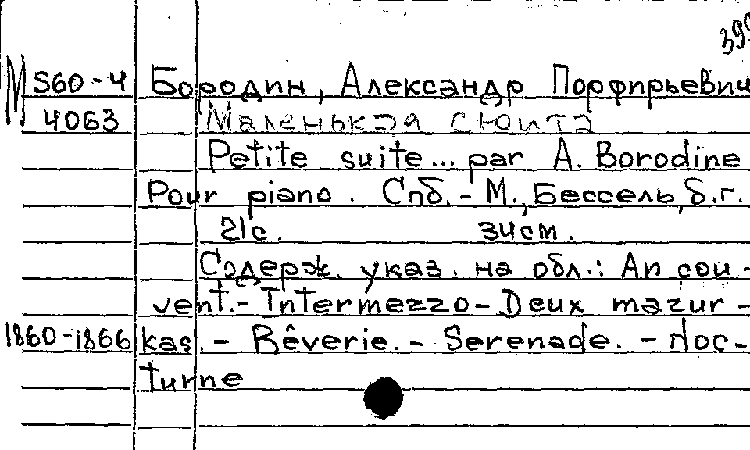 399
М S60-4 Бородин, Александр Порфирьевич
4063 Маленькая сюита
Petite suite... par A. Borodine
Pour piano. Спб.-М., Бессель, б.г.
21с. 34см.
Содерж. указ. на обл.: An cou-
vent.- Intermezzo- Deux mazur-
1860-1866 kas.- Rêverie.- Serenade.- Noc-
turne